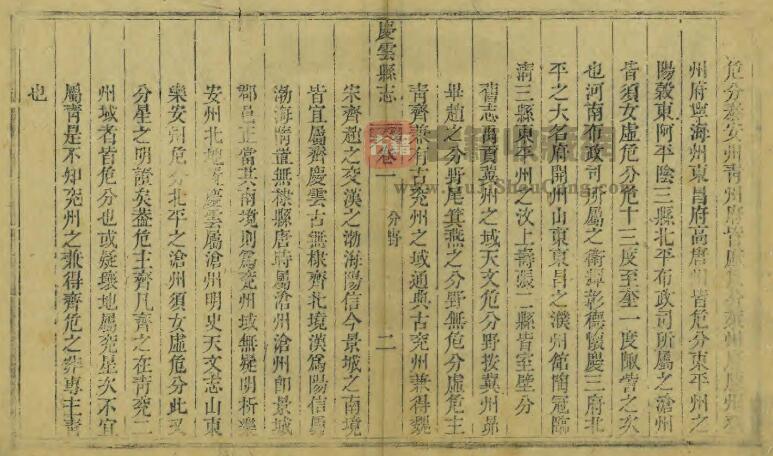 危分泰安州青州府皆
州府寧海州東昌府高唐 皆危分東平州之
陽穀東阿平陰三縣北平布政司所屬之滄州
皆須女虛危分危十三度至奎一度陬訾之次
也河南布政司所屬之衛輝彰德懷慶三府北
平之大名府開州山東東昌之濮州館陶冠臨
清三縣東平州之汶上壽張二縣皆室壁分
舊志禹貢冀州之域天文危分野按冀州昴
畢趙之分野尾箕燕之分野無危分虛危主
青齊兼有古兗州之域通典古兗州兼得魏
慶雲縣志
卷一
分野
二
宋齊趙之交漢之渤海陽信今景城之南境
皆宜屬齊慶雲古無棣齊北境漢爲陽信屬
渤海隋置無棣縣唐時屬滄州滄州卽景城
郡邑正當其南境則爲兗州域無疑明析樂
安州北地 慶雲屬滄州明史天文志山東
樂安州危分北平之滄州須女虛危分此又
分星之明證矣蓋危主齊凡齊之在青兗二
州域者皆危分也或疑壤地屬兗星次不宜
屬青是不知兗州之兼得齊危之非專主青
也